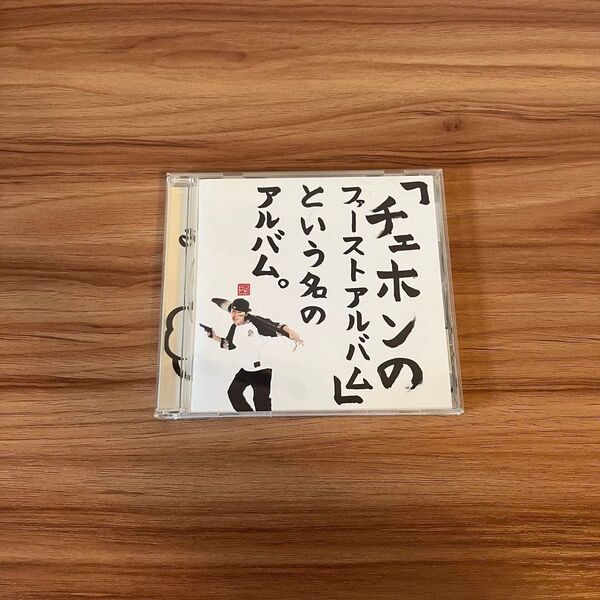 「チェホンの
ファーストアルバム」
という名の
アルバム。